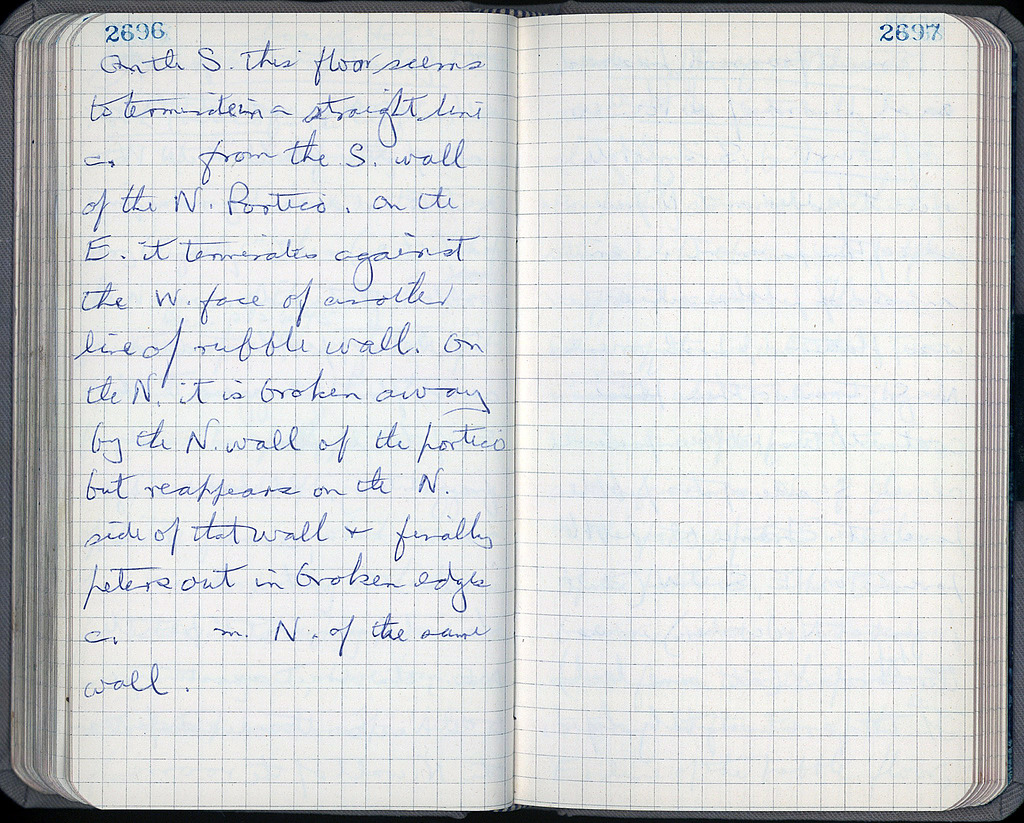 2696
On the S. this floor seems
to terminate in a straight line
c. from the S. wall
of the N. Portico. On the
E. it terminates against
the W. face of another
line of rubble wall. On
the N. it is broken away
by the N. wall of the portico
but reappears on the N.
side of that wall + finally
peters out in broken edges
c. m. N. of the same
wall.
2697